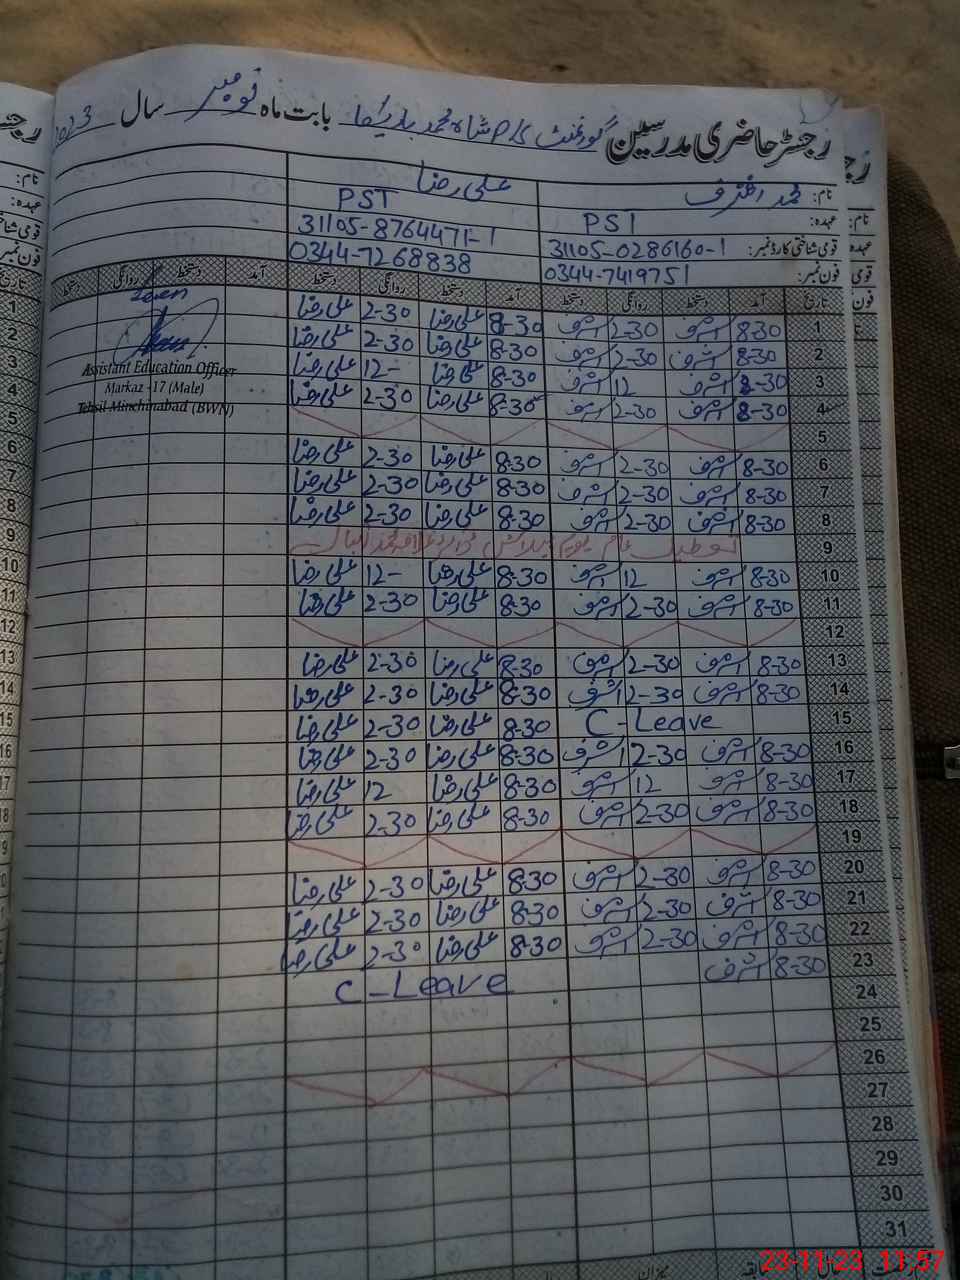 رجسٹر حاضری مدرسین گورنمنٹ P/S شاہ محمد بابت ماہ نومبر سال 2023
نام: محمد اشرف علی رضا
عہدہ: PST PST
قومی شناختی کارڈ نمبر: 31105-0286160-1 31105-8764471-1
فون نمبر: 0344-7419751 0344-7268838
تاریخ آمد دستخط روانگی دستخط آمد دستخط روانگی دستخط آمد دستخط روانگی دستخط
1 8-30 اشرف 2-30 اشرف 8-30 علی رضا 2-30 علی رضا
2 8-30 اشرف 2-30 اشرف 8-30 علی رضا 2-30 علی رضا
3 8-30 اشرف 12 اشرف 8-30 علی رضا 12- علی رضا
4 8-30 اشرف 2-30 اشرف 8-30 علی رضا 2-30 علی رضا
Assistant Education Officer
Markaz -17 (Male)
Tehsil Minchinabad (BWN)
5
6 8-30 اشرف 2-30 اشرف 8-30 علی رضا 2-30 علی رضا
7 8-30 اشرف 2-30 اشرف 8-30 علی رضا 2-30 علی رضا
8 8-30 اشرف 2-30 اشرف 8-30 علی رضا 2-30 علی رضا
9 تعطیل عام یوم پیدائش ڈاکٹر علامہ محمد اقبال
10 8-30 اشرف 12 اشرف 8-30 علی رضا 12- علی رضا
11 8-30 اشرف 2-30 اشرف 8-30 علی رضا 2-30 علی رضا
12
13 8-30 اشرف 2-30 اشرف 8-30 علی رضا 2-30 علی رضا
14 8-30 اشرف 2-30 اشرف 8-30 علی رضا 2-30 علی رضا
15 C-Leave 8-30 علی رضا 2-30 علی رضا
16 8-30 اشرف 2-30 اشرف 8-30 علی رضا 2-30 علی رضا
17 8-30 اشرف 12 اشرف 8-30 علی رضا 12 علی رضا
18 8-30 اشرف 2-30 اشرف 8-30 علی رضا 2-30 علی رضا
19
20 8-30 اشرف 2-30 اشرف 8-30 علی رضا 2-30 علی رضا
21 8-30 اشرف 2-30 اشرف 8-30 علی رضا 2-30 علی رضا
22 8-30 اشرف 2-30 اشرف 8-30 علی رضا 2-30 علی رضا
23 8-30 اشرف C-Leave
24
25
26
27
28
29
30
31
میزان
23-11-23 11:57